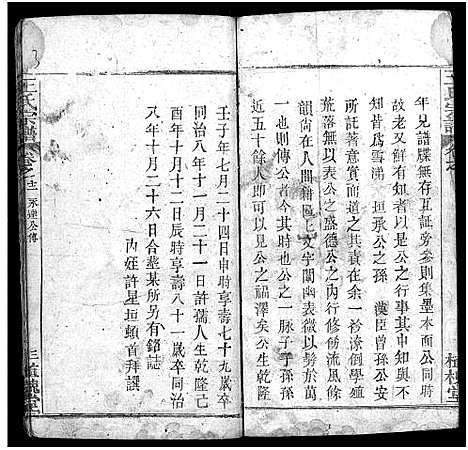 王氏宗譜
年兄譜牒無存互証旁參則集墨本面公同時
故老又鮮有知者以是公之行事其中知與不
知皆爲雪涕 垣承公之孫 漢臣曾孫公安
所著意實而道之其奈余一衿潦倒學殖
荒落無以表公之盛德公之內行修飭流風餘
韻尚在人間藉區區文字闡幽表微以勢於萬
一也則傳公者今其一脉子子孫孫
近五十餘人即可以見公之福澤矣公生乾隆
壬子年七月二十四日申時享壽七十九歲卒
同治八年十一月二十一日許孺人生乾隆己
酉年十月二十二日辰時享壽八十一歲卒同治
八年十月二十六日合塟某所另有銘誌
內姪許星垣頓首拜譔
王氏宗譜
卷之
永達公傳
三槐堂
植桂堂